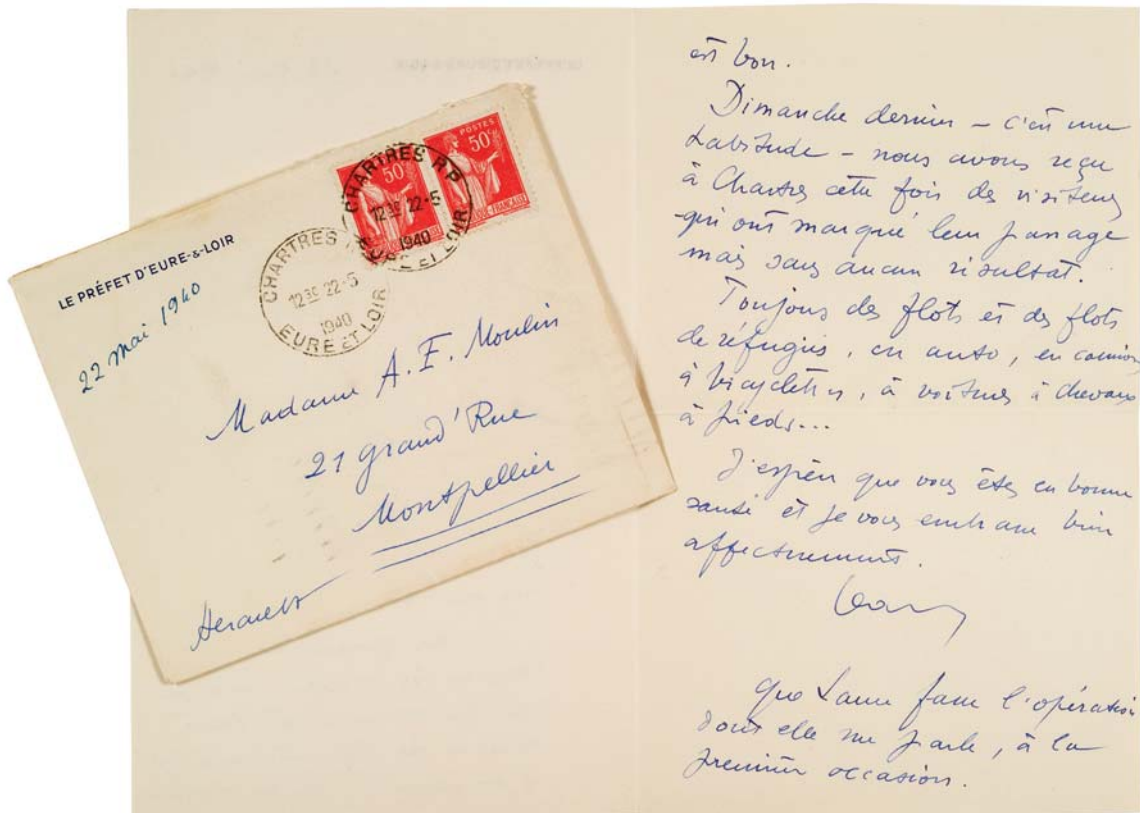 LE PRÉFET D'EURE-&-LOIR
22 mai 1940
POSTES
50c
50c
CHARTRES R.P.
12 35 22-5
1940
EURE ET LOIR
CHARTRES
12 35 22-5
1940
EURE ET LOIR
Madame A. E. Moulin
21 Grand'Rue
Montpellier
Herault
est bon.
Dimanche dernier – c'est une
habitude – nous avons reçu
à Chartres cette fois des visiteurs
qui ont marqué leur passage
mais sans aucun résultat.
Toujours des flots et des flots
de réfugiés, en auto, en camion,
à bicyclettes, à voitures à chevaux
à pieds...
J'espère que vous êtes en bonne
santé et je vous embrasse bien
affectueusement.
Jean
Que Laure fasse l'opération
dont elle me parle, à la
première occasion.